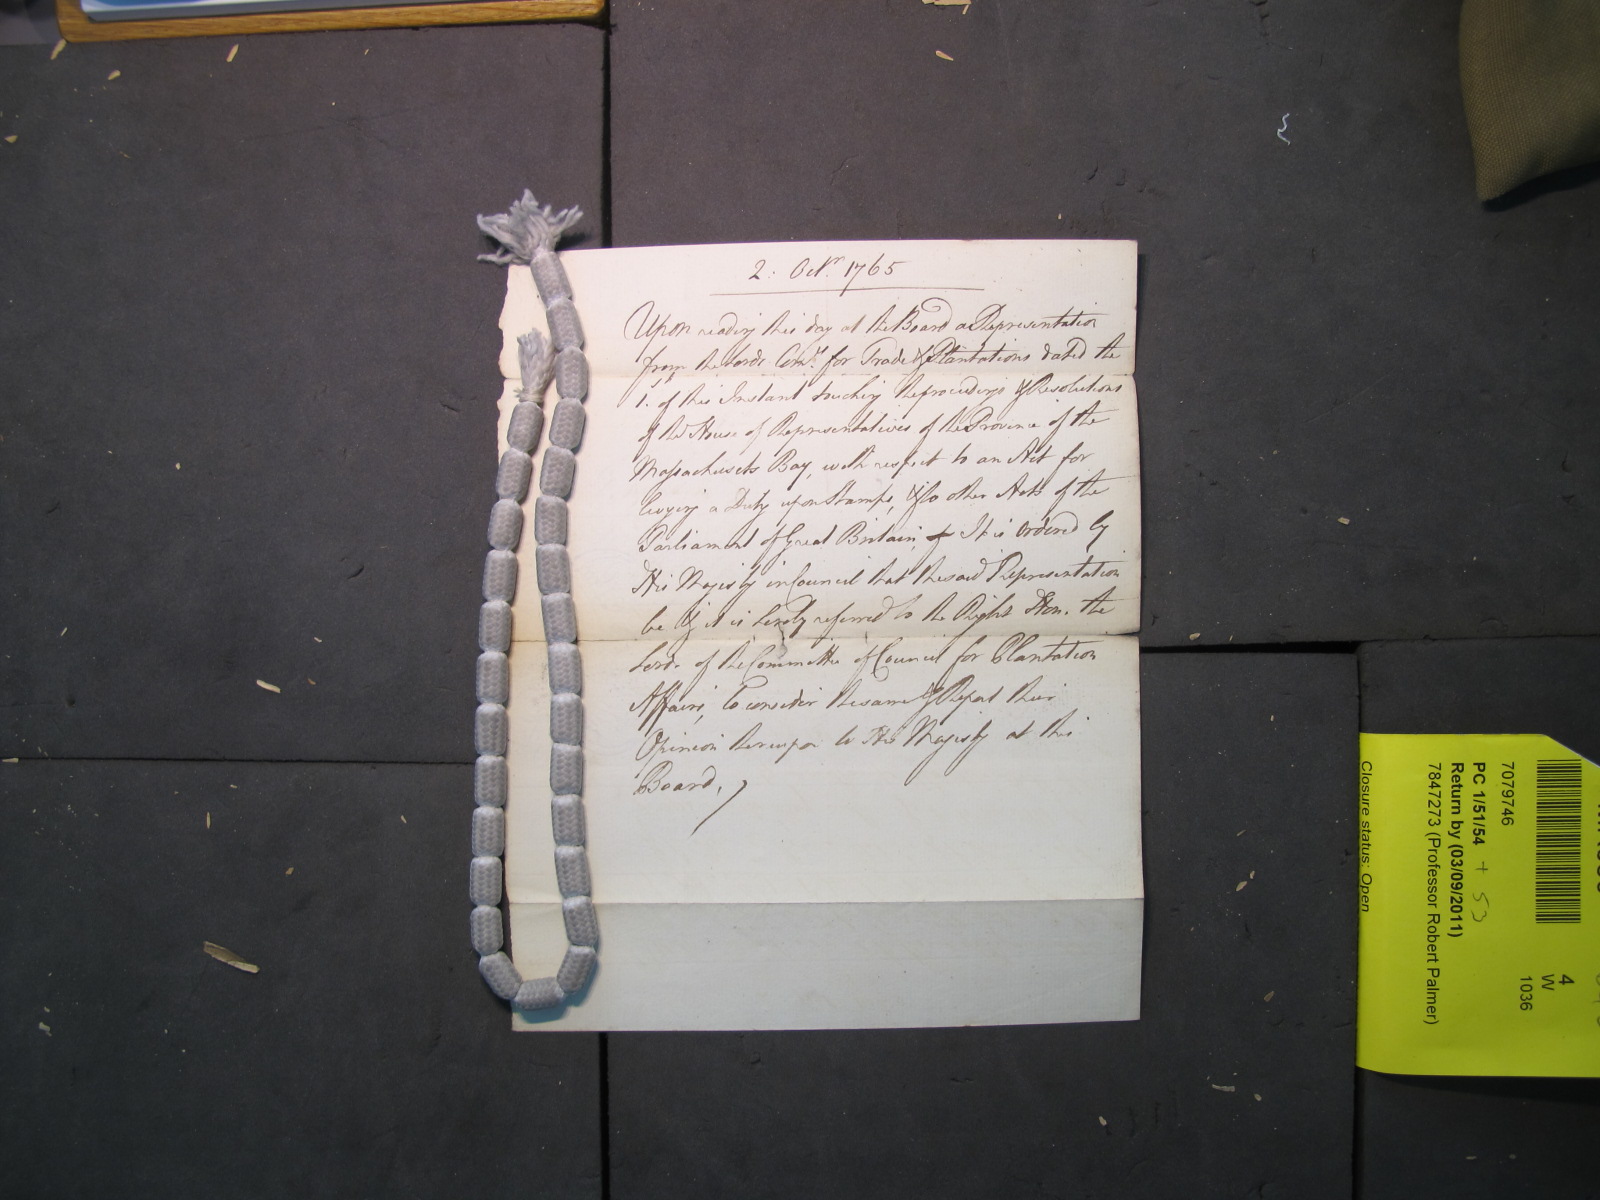 2. Octr. 1765
Upon reading this day at the Board a Representation
from the Lords Comrs. for Trade & Plantations dated the
1. of this Instant touching the proceedings & Resolutions
of the House of Representatives of the Province of the
Massachusets Bay, with respect to an Act for
levying a Duty upon Stamps, & to other Acts of the
Parliament of Great Britain, It is ordered by
His Majesty in Council that the said Representation
be & it is hereby referred to the Right Hon. the
Lords of the Committee of Council for Plantation
Affairs, to consider the same & Report their
Opinion thereupon to His Majesty at this
Board,
7079746
PC 1/51/54 + 53
Return by (03/09/2011)
7847273 (Professor Robert Palmer)
Closure status: Open
4
W
1036